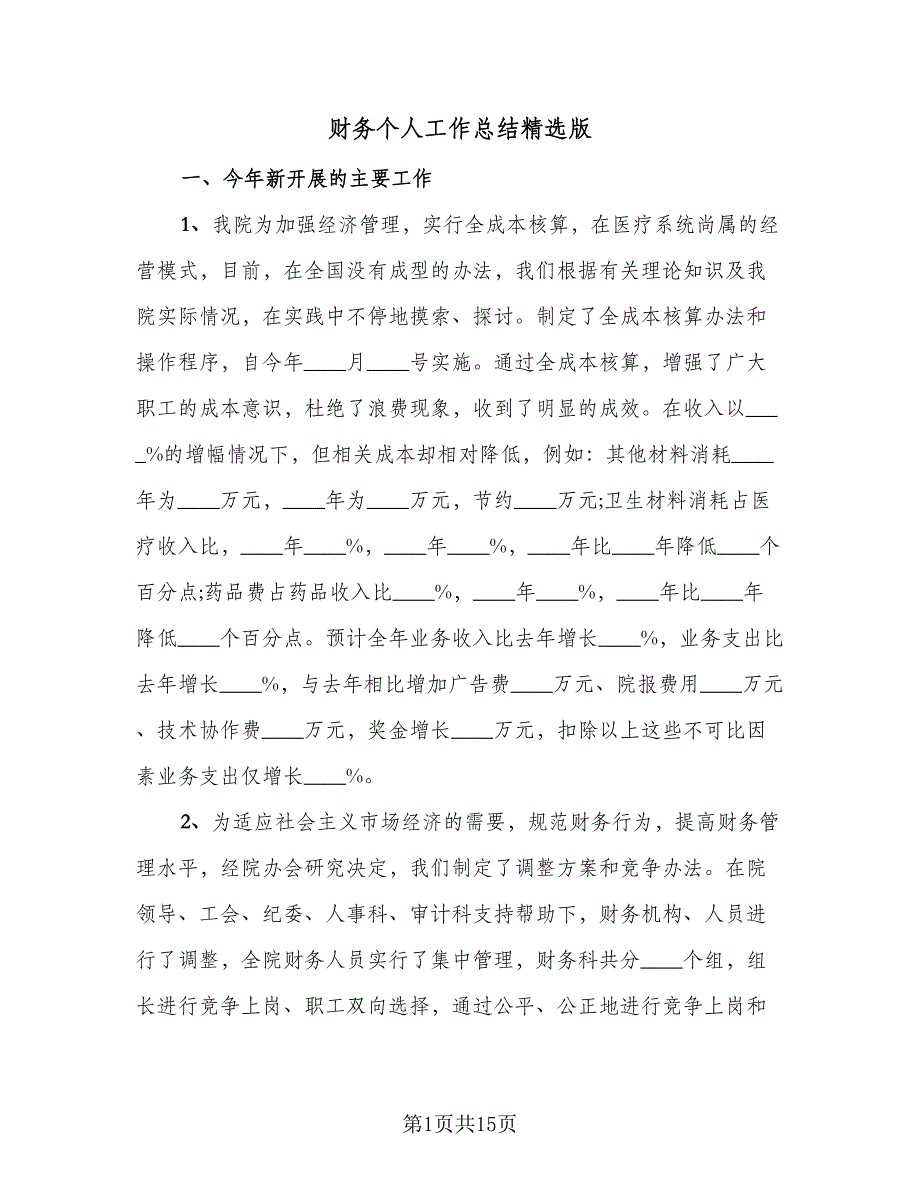 财务个人工作总结精选版
一、今年新开展的主要工作
1、我院为加强经济管理，实行全成本核算，在医疗系统尚属的经
营模式，目前，在全国没有成型的办法，我们根据有关理论知识及我
院实际情况，在实践中不停地摸索、探讨。制定了全成本核算办法和
操作程序，自今年____月____号实施。通过全成本核算，增强了广大
职工的成本意识，杜绝了浪费现象，收到了明显的成效。在收入以___
_%的增幅情况下，但相关成本却相对降低，例如：其他材料消耗____
年为____万元，____年为____万元，节约____万元;卫生材料消耗占医
疗收入比，____年____%，____年____%，____年比____年降低____个
百分点;药品费占药品收入比____%，____年____%，____年比____年
降低____个百分点。预计全年业务收入比去年增长____%，业务支出比
去年增长____%，与去年相比增加广告费____万元、院报费用____万元
、技术协作费____万元，奖金增长____万元，扣除以上这些不可比因
素业务支出仅增长____%。
2、为适应社会主义市场经济的需要，规范财务行为，提高财务管
理水平，经院办会研究决定，我们制定了调整方案和竞争办法。在院
领导、工会、纪委、人事科、审计科支持帮助下，财务机构、人员进
行了调整，全院财务人员实行了集中管理，财务科共分____个组，组
长进行竞争上岗、职工双向选择，通过公平、公正地进行竞争上岗和
第1页共15页